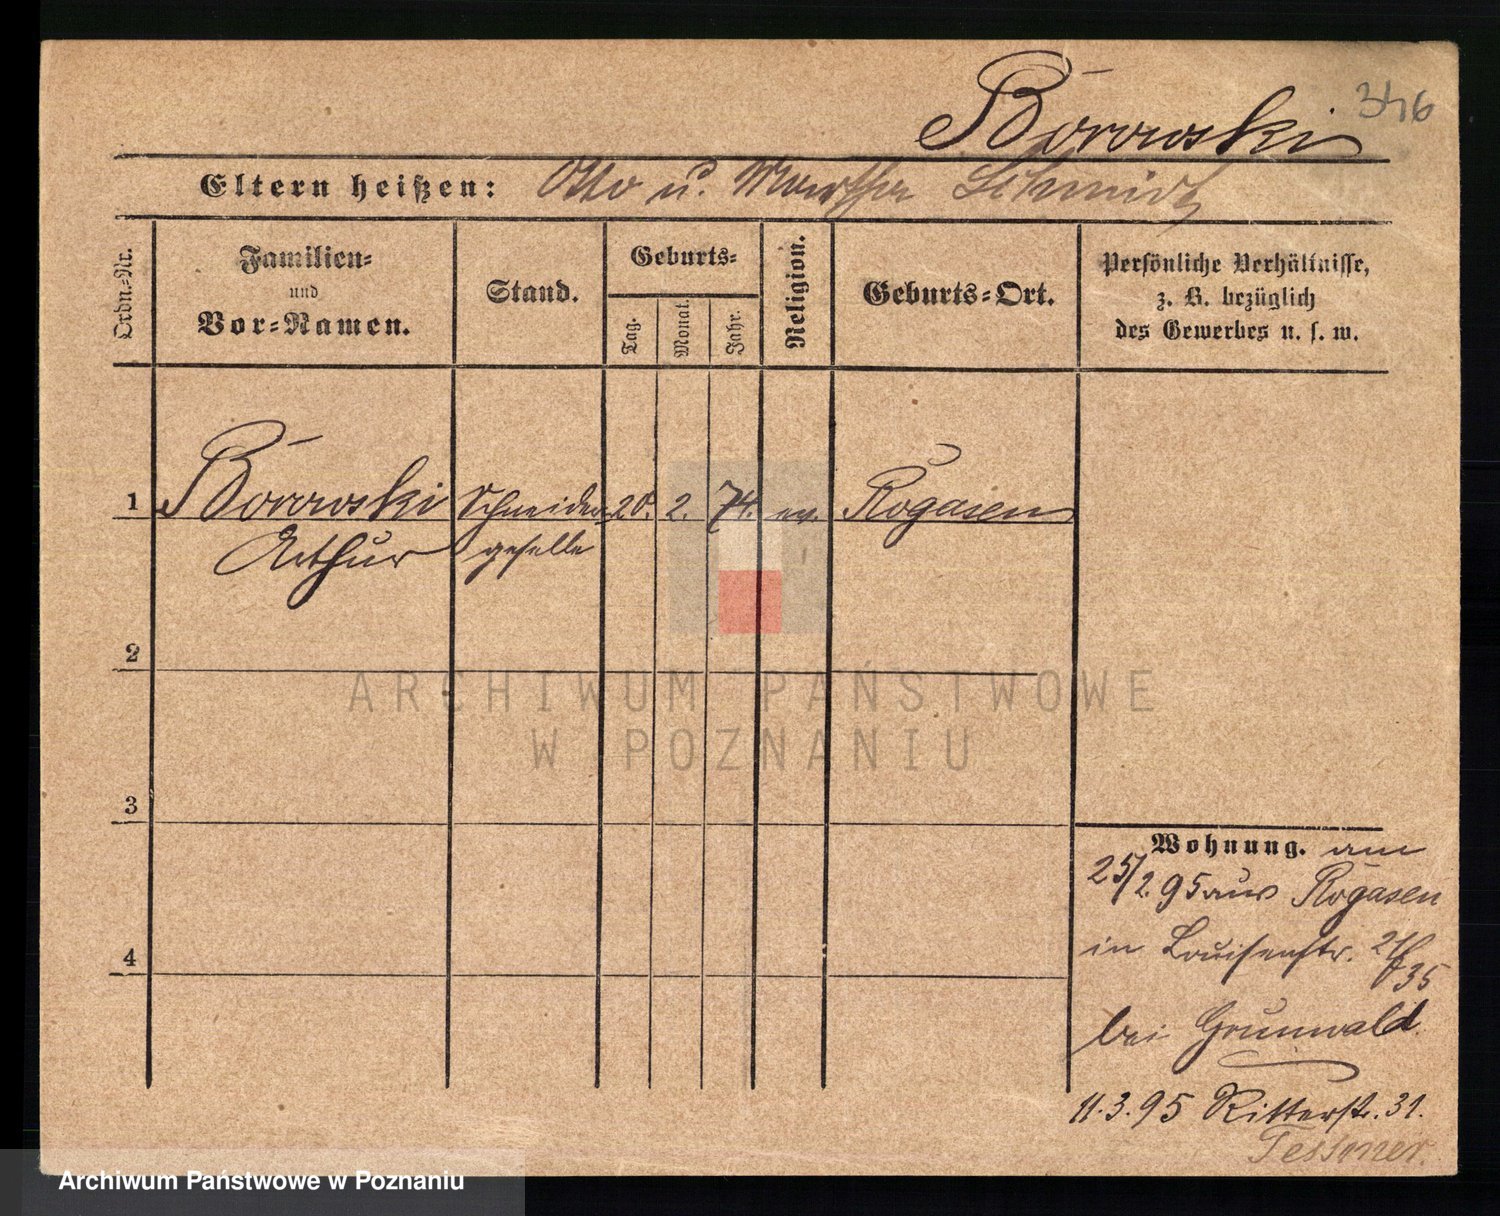 346
Borowski
Eltern heißen: Otto u. Martha Schmidt
Ordn.-Nr.
Familien-
und
Vor-Namen.
Stand.
Geburts-
Tag.
Monat.
Jahr.
Religion.
Geburts-Ort.
Persönliche Verhältnisse,
z. B. bezüglich
des Gewerbes u. s. w.
1 Borowski Schneider 20. 2. 74. ev. Rogasen
Arthur geselle
2
ARCHIWUM PAŃSTWOWE
W POZNANIU
3
Wohnung. am
25/2 95 aus Rogasen
in Louisenstr.
35
bei Grunwald.
4
11.3.95 Ritterstr. 31.
Tessmer.
Archiwum Państwowe w Poznaniu